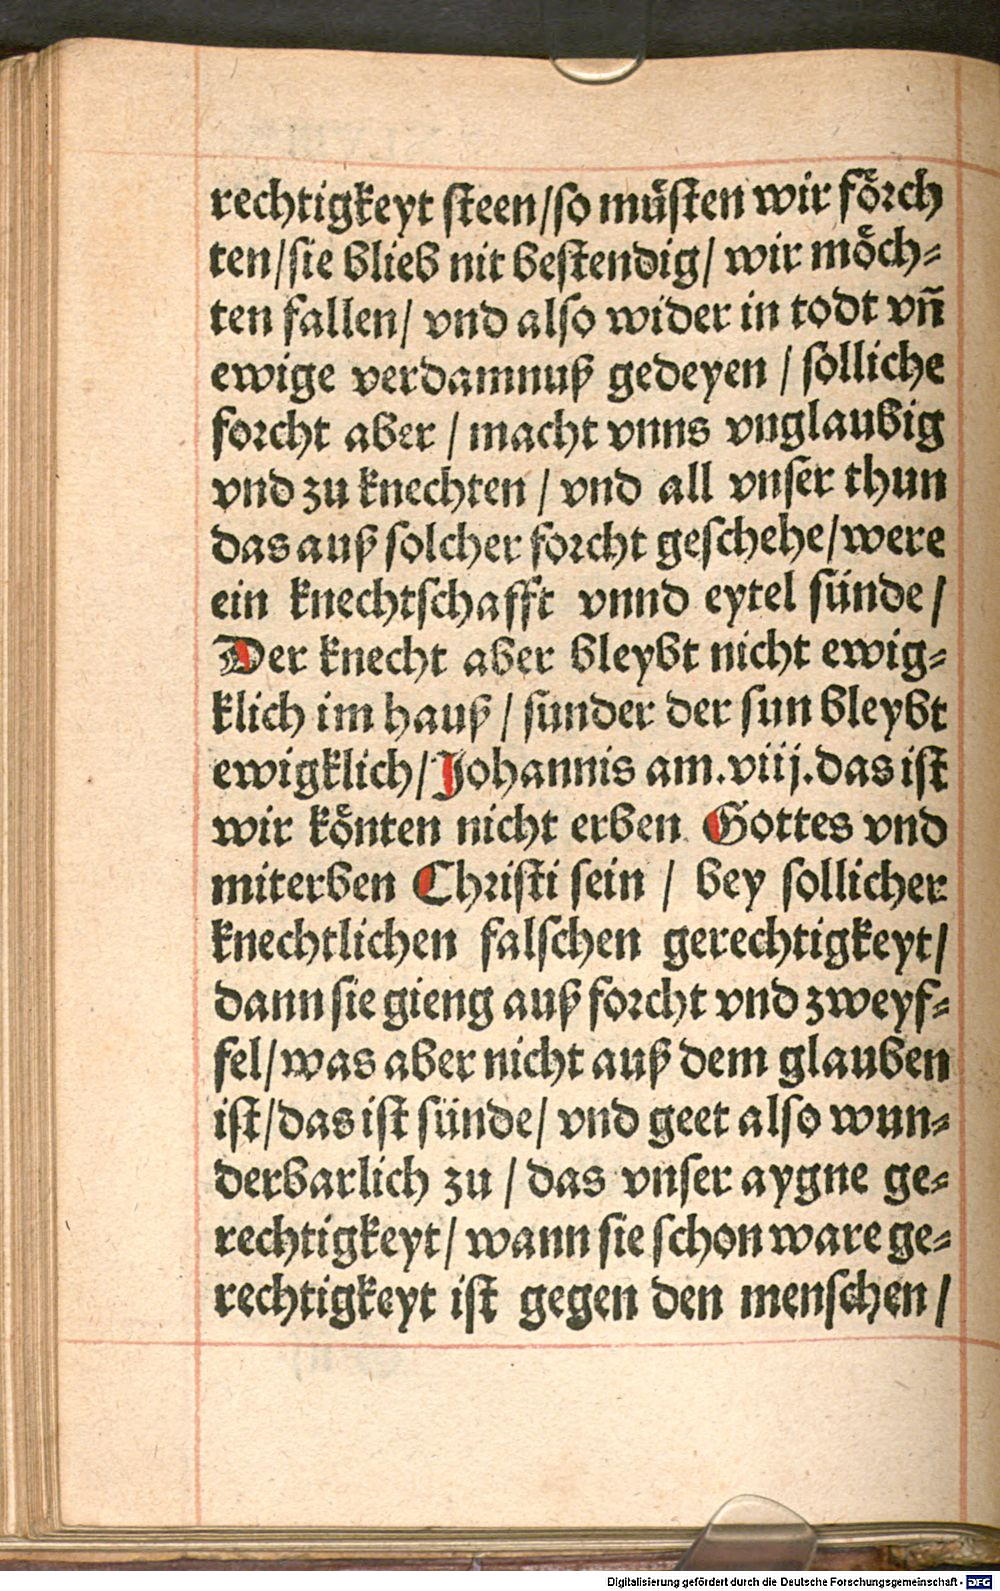 rechtigkeyt steen/so müsten wir förch
ten/sie blieb nit bestendig/ wir möch-
ten fallen/ vnd also wider in todt vñ
ewige verdamnuß gedeyen / solliche
forcht aber / macht vnns vnglaubig
vnd zu knechten / vnd all vnser thun
das auß solcher forcht geschehe/were
ein knechtschafft vnnd eytel sünde /
Der knecht aber bleybt nicht ewig-
klich im hauß / sunder der sun bleybt
ewigklich/ Johannis am.viij.das ist
wir könten nicht erben Gottes vnd
miterben Christi sein / bey sollicher
knechtlichen falschen gerechtigkeyt/
dann sie gieng auß forcht vnd zweyf-
fel/was aber nicht auß dem glauben
ist/das ist sünde/ vnd geet also wun-
derbarlich zu / das vnser aygne ge-
rechtigkeyt/ wann sie schon ware ge-
rechtigkeyt ist gegen den menschen /
Digitalisierung gefördert durch die Deutsche Forschungsgemeinschaft - DFG